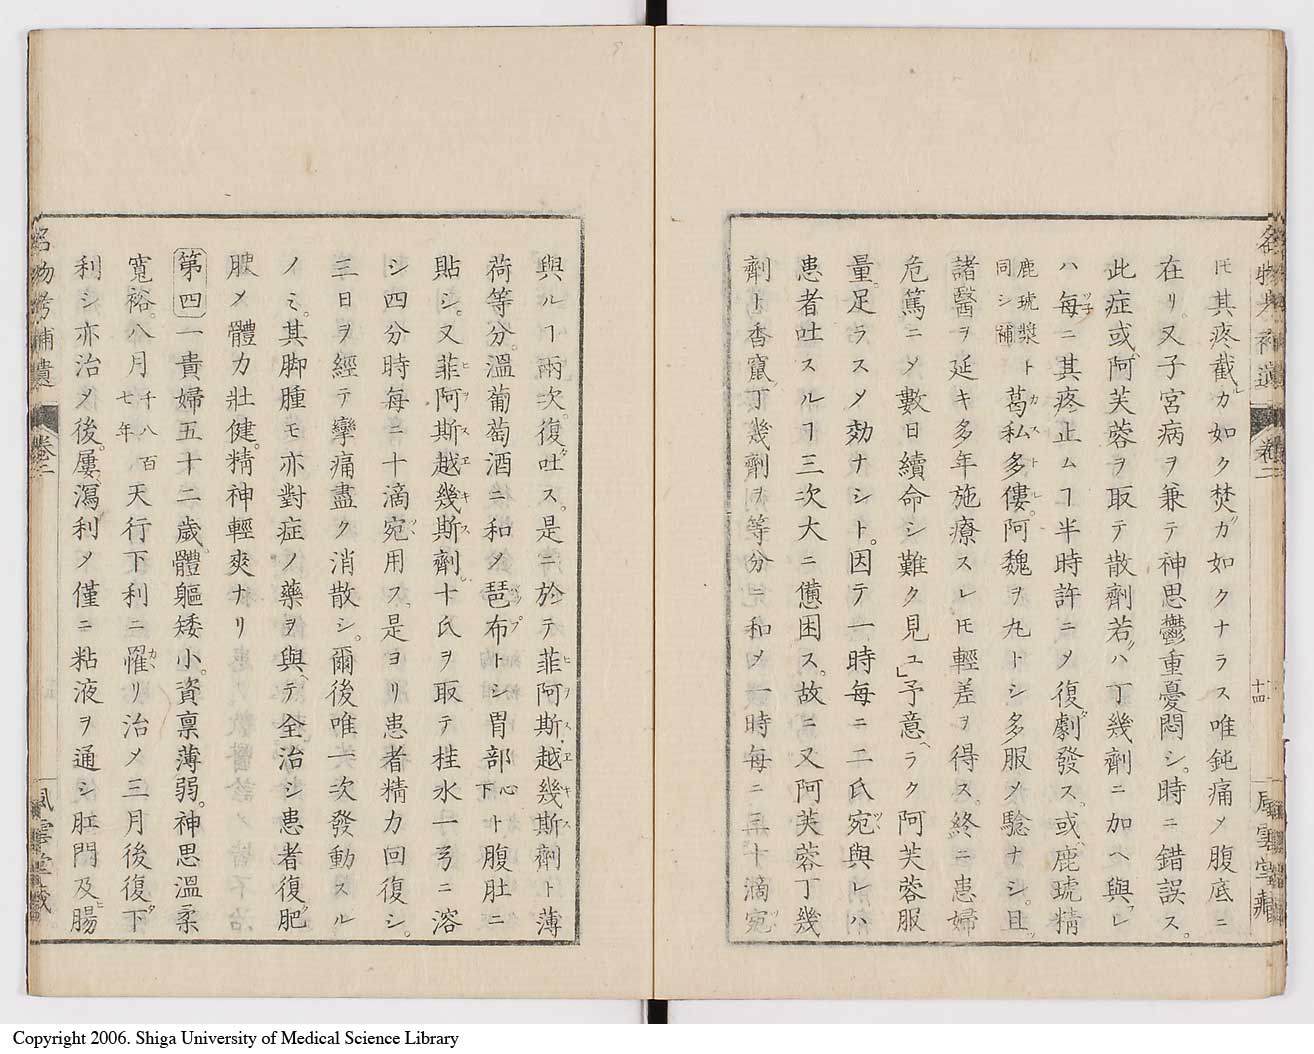 名物考補遺 卷二 十四 風雲堂藏
𪜈其疼截ルカ如ク焚カ如クナラス唯鈍痛〆腹底ニ
在リ。又子宮病ヲ兼テ神思鬱重憂悶シ。時ニ錯誤ス。
此症或ハ阿芙蓉ヲ取テ散劑若クハ丁幾劑ニ加ヘ與フレ
ハ每ツ子ニ其疼止ムヿ半時許ニ〆復タ劇發ス。或ハ鹿琥精
鹿琥漿ト同シ補葛私多僂カストレ。阿魏ヲ丸トシ多服〆驗ナシ。且ツ
諸醫ヲ延キ多年施療スレ𪜈輕差ヲ得ス。終ニ患婦
危篤ニ〆數日續命シ難ク見ユ」予意ヘラク阿芙蓉服
量。足ラス〆効ナシト。因テ一時每ニ二氏宛ツヽ與レハ
患者吐スルヿ三次大ニ憊困ス。故ニ又阿芙蓉丁幾
劑ト香竄丁幾劑ヲ等分ニ和〆一時每ニ三十滴宛ツヽ
與ルヿ兩次。復タ吐ス。是ニ於テ菲阿斯越幾斯ヒヲスエキス劑ト薄
荷等分。溫葡萄酒ニ和〆琶布ハップトシ胃部心下ト腹肚ニ
貼シ。又菲阿斯越幾斯ヒヲスエキス劑。十氏ヲ取テ桂水一弓ニ溶
シ四分時每ニ十滴宛ツヽ用ス。是ヨリ患者精力回復シ。
三日ヲ經テ攣痛盡ク消散シ。爾後唯一次發動スル
ノミ。其脚腫モ亦對症ノ藥ヲ與ヘテ全治シ患者復タ肥
腴〆體力壯健。精神輕爽ナリ
第四一貴婦五十二歲。體軀矮小。資稟薄弱。神思溫柔
寬裕。八月千八百七年天行下利ニ罹カヽリ治〆三月後復タ下
利シ亦治〆後。屢瀉利〆僅ニ粘液ヲ通シ肛門及ヒ腸
名物考補遺 卷二 風雲堂藏
Copyright 2006. Shiga University of Medical Science Library